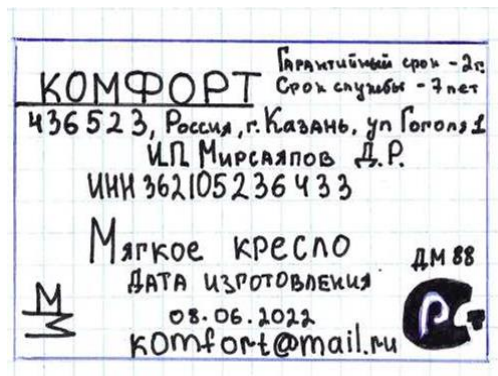 Гарантийный срок - 2г.
Срок службы - 7 лет
КОМФОРТ
436523, Россия, г. Казань, ул Гоголя 1
И.П. Мирсаяпов Д.Р.
ИНН 362105236433
Мягкое кресло
ДМ 88
Дата изготовления
08.06.2022
komfort@mail.ru
М
М
РСТ